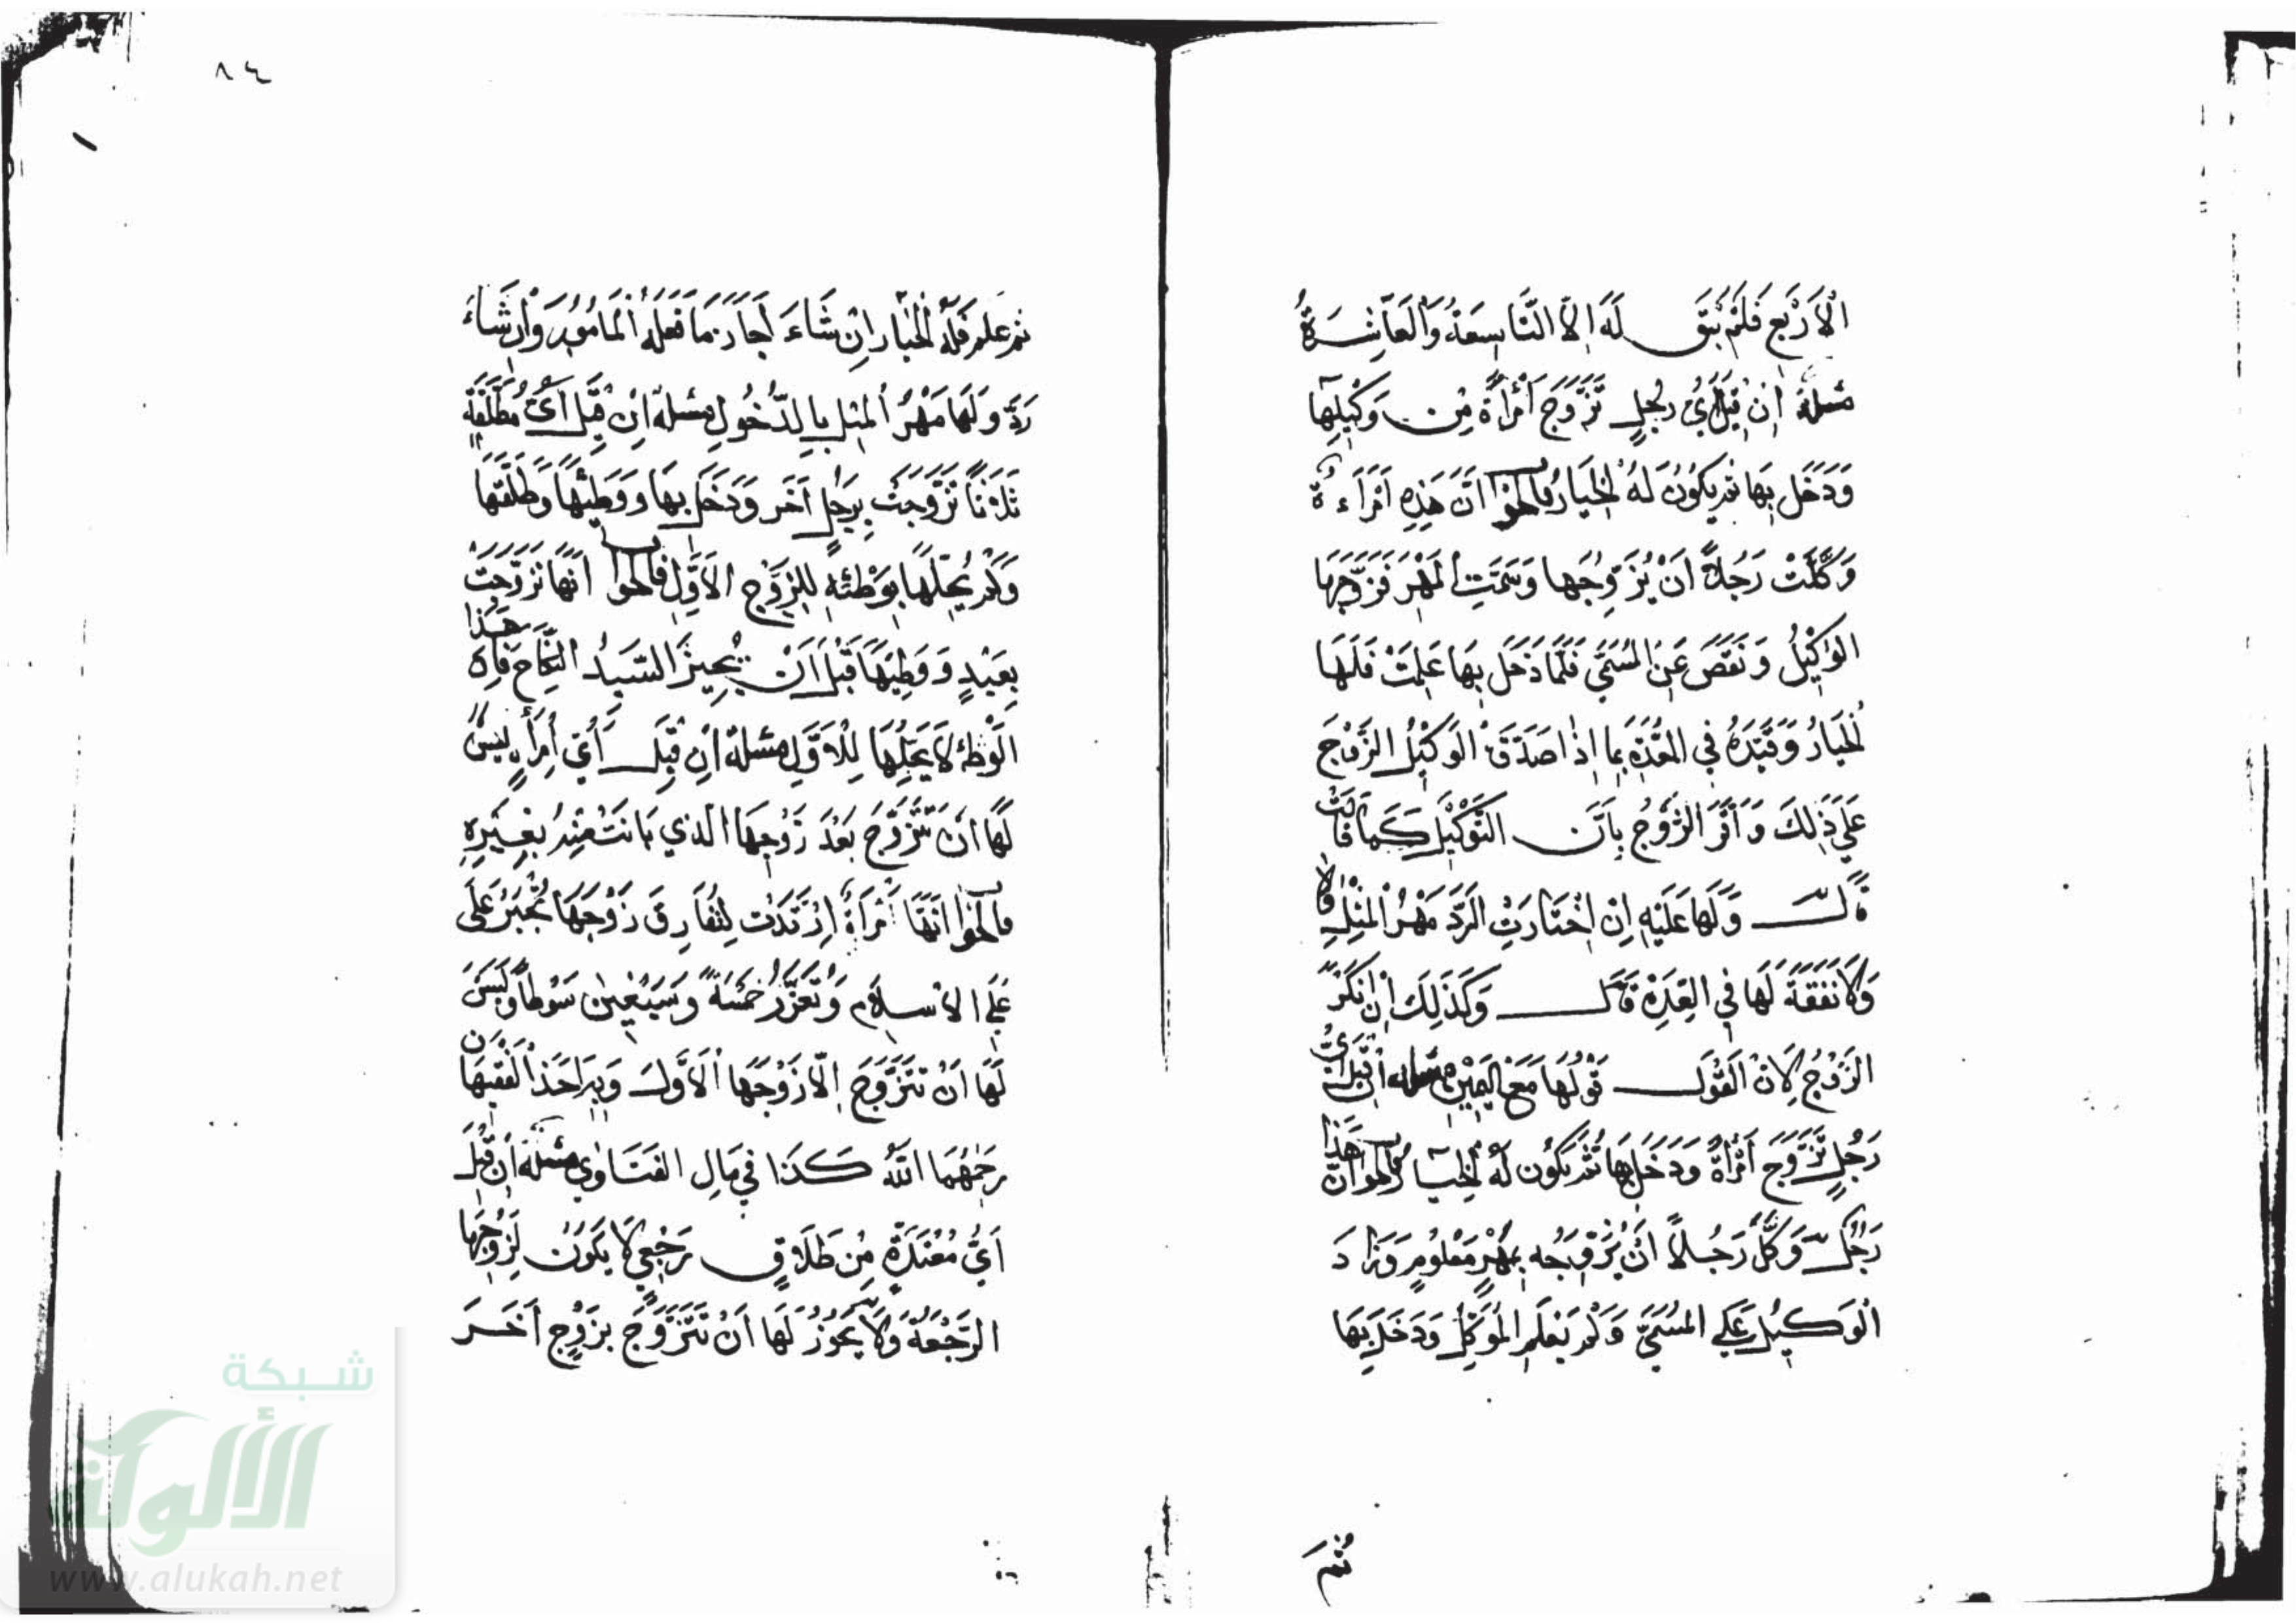 الْأَرْبَعِ فَلَمْ يَبْقَ لَهُ إِلَّا التَّاسِعَةُ وَالْعَاشِرَةُ
مسئلة إِنْ قِيلَ أَيُّ رَجُلٍ تَزَوَّجَ امْرَأَةً مِنْ وَكِيلِهَا
وَدَخَلَ بِهَا ثم يَكُونُ لَهُ الْخِيَارُ فالجواب أَنَّ هَذِهِ امْرَاءَةٌ
وَكَّلَتْ رَجُلًا أَنْ يُزَوِّجَهَا وَسَمَّتِ الْمَهْرَ فَزَوَّجَهَا
الْوَكِيلُ وَنَقَصَ عَنِ الْمُسَمَّى فَلَمَّا دَخَلَ بِهَا عَلِمَتْ فَلَهَا
الْخِيَارُ وَقَيَّدَهُ فِي الْعُدَّةِ بِمَا إِذَا صَدَّقَ الْوَكِيلُ الزَّوْجَ
عَلَى ذَلِكَ وَأَقَرَّ الزَّوْجُ بِأَنَّ التَّوْكِيلَ كَمَا قَالَتْ
قَالَ وَلَهَا عَلَيْهِ إِنْ اخْتَارَتِ الرَّدَّ مَهْرُ الْمِثْلِ
وَلَا نَفَقَةَ لَهَا فِي الْعِدَّةِ قَالَ وَكَذَلِكَ إِنْ أَنْكَرَ
الزَّوْجُ لِأَنَّ الْقَوْلَ قَوْلُهَا مَعَ الْيَمِينِ مسئلة إِنْ قِيلَ أَيُّ
رَجُلٍ تَزَوَّجَ امْرَأَةً وَدَخَلَ بِهَا ثُمَّ يَكُونُ لَهُ الْخِيَارُ فالجواب أَنَّ هَذَا
رَجُلٌ وَكَّلَ رَجُلًا أَنْ يُزَوِّجَهُ بِمَهْرٍ مَعْلُومٍ وَزَادَ
الْوَكِيلُ عَلَى الْمُسَمَّى وَلَمْ يَعْلَمِ الْمُوَكِّلُ وَدَخَلَ بِهَا
ثُمَّ
٨٤
ثم علم فَلَهُ الْخِيَارُ إِنْ شَاءَ أَجَازَ مَا فَعَلَهُ الْمَأْمُورُ وَإِنْ شَاءَ
رَدَّ وَلَهَا مَهْرُ الْمِثْلِ بِالدُّخُولِ مسئلة إِنْ قِيلَ أَيُّ مُطَلَّقَةٍ
ثَلَاثًا تَزَوَّجَتْ بِرَجُلٍ آخَرَ وَدَخَلَ بِهَا وَوَطِئَهَا وَطَلَّقَهَا
وَلَمْ يُحِلَّهَا بِوَطْئِهِ لِلزَّوْجِ الْأَوَّلِ فالجواب أَنَّهَا تَزَوَّجَتْ
بِعَبْدٍ وَوَطِئَهَا قَبْلَ أَنْ يُجِيزَ السَّيِّدُ النِّكَاحَ فَإِنَّ هَذَا
الْوَطْءَ لَا يُحِلُّهَا لِلْأَوَّلِ مسئلة إِنْ قِيلَ أَيُّ امْرَأَةٍ لَيْسَ
لَهَا أَنْ تَتَزَوَّجَ بَعْدَ زَوْجِهَا الَّذِي بَانَتْ مِنْهُ بِغَيْرِهِ
فالجواب أَنَّهَا امْرَأَةٌ ارْتَدَّتْ لِتُفَارِقَ زَوْجَهَا تُجْبَرُ عَلَى
عَلَى الْإِسْلَامِ وَتُعَزَّرُ خَمْسَةً وَسَبْعِينَ سَوْطًا وَلَيْسَ
لَهَا أَنْ تَتَزَوَّجَ إِلَّا زَوْجَهَا الْأَوَّلَ وَبِهِ أَخَذَ الْفَقِيهَانِ
رَحِمَهُمَا اللَّهُ كَذَا فِي مَآلِ الْفَتَاوِي مسئلة إِنْ قِيلَ
أَيُّ مُعْتَدَّةٍ مِنْ طَلَاقٍ رَجْعِيٍّ لَا يَكُونُ لِزَوْجِهَا
الرَّجْعَةُ وَلَا يَجُوزُ لَهَا أَنْ تَتَزَوَّجَ بِزَوْجٍ آخَرَ
شبكة
الألوكة
www.alukah.net